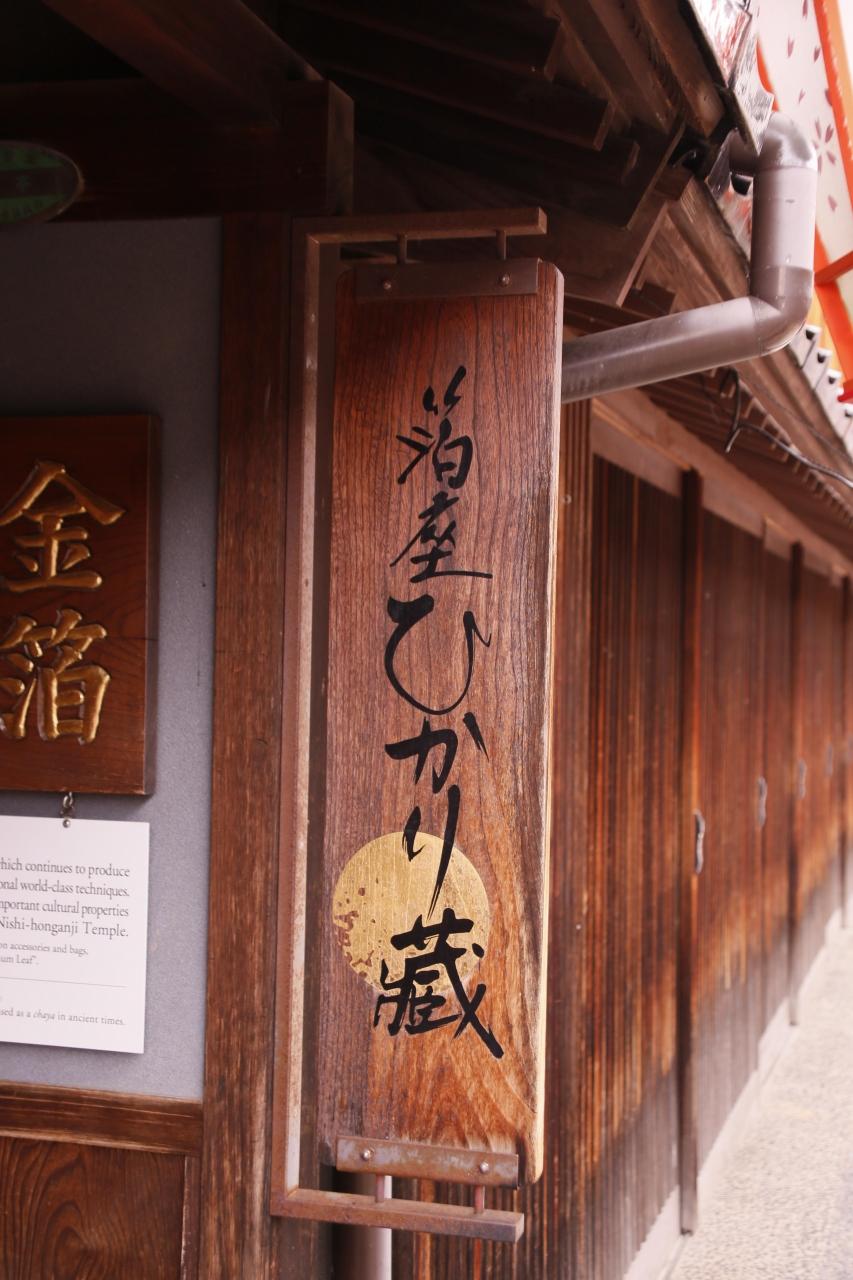 箔座ひかり藏
金箔
which continues to produce
onal world-class techniques.
mportant cultural properties
Nishi-honganji Temple.
on accessories and bags,
um Leaf".
sed as a chaya in ancient times.